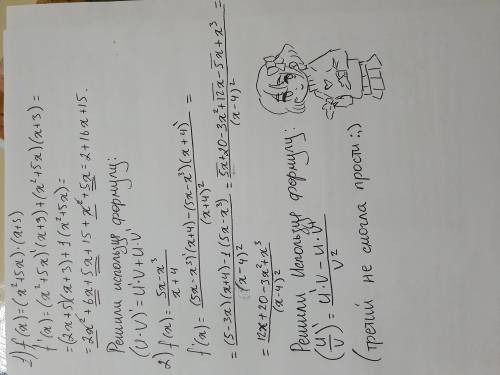 1) f(x) = (x²+5x)·(x+3)
f'(x) = (x²+5x)'(x+3)+(x²+5x)(x+3) =
= (2x+5)(x+3)+1(x²+5x) =
= 2x²+6x+5x+15+x²+5x = 2+16x+15.
Решили используя формулу:
(U·V)' = U'·V+U·V'
2) f(x) = 5x-x³ / x+4
f'(x) = (5x-x³)'(x+4)-(5x-x³)(x+4)' / (x+4)² =
= (5-3x)(x+4)-1(5x-x³) / (x-4)² = 5x+20-3x²+12x-5x+x³ / (x-4)² =
= 12x+20-3x²+x³ / (x-4)²
Решили используя формулу:
(U/V)' = U'·V-U·V' / V²
(третий не смогла прости :,)